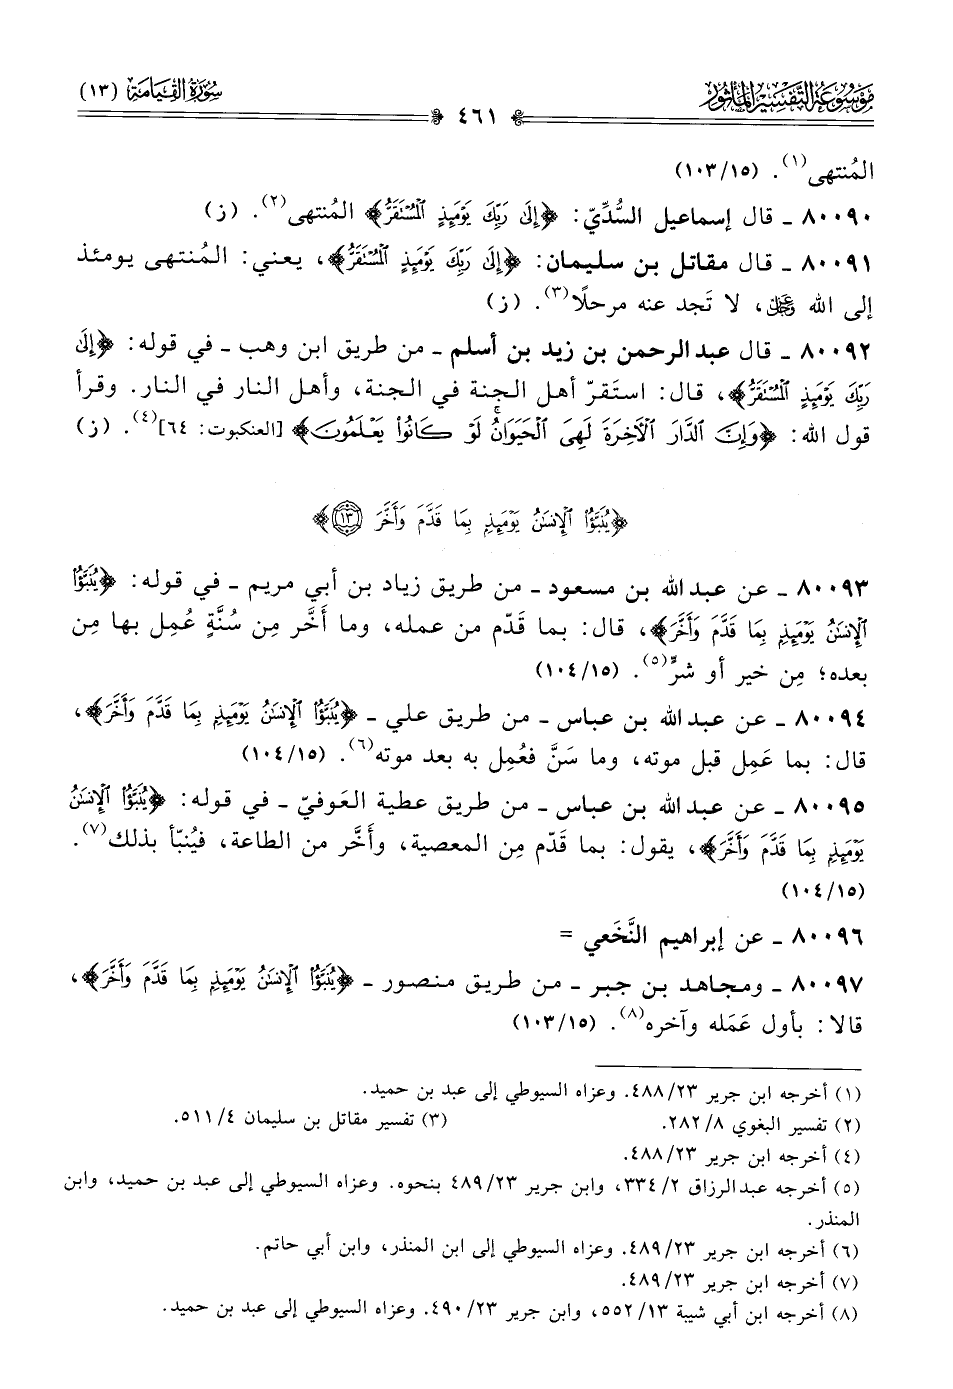 مَوْسُوعَة التَّفْسِير المَأْثُور
٤٦١
سُورَةُ القِيَامَة (١٣)
المُنتهى(١). (١٥/١٠٣)
٨٠٠٩٠ ـ قال إسماعيل السُّدِّيّ: ﴿إِلَىٰ رَبِّكَ يَوْمَئِذٍ ٱلْمُسْتَقَرُّ﴾ المُنتهى(٢). (ز)
٨٠٠٩١ ـ قال مقاتل بن سليمان: ﴿إِلَىٰ رَبِّكَ يَوْمَئِذٍ ٱلْمُسْتَقَرُّ﴾، يعني: المُنتهى يومئذ
إلى الله عَزَّ وَجَلَّ، لا تَجد عنه مرحلًا(٣). (ز)
٨٠٠٩٢ ـ قال عبدالرحمن بن زيد بن أسلم ـ من طريق ابن وهب ـ في قوله: ﴿إِلَىٰ
رَبِّكَ يَوْمَئِذٍ ٱلْمُسْتَقَرُّ﴾، قال: استَقرّ أهل الجنة في الجنة، وأهل النار في النار. وقرأ
قول الله: ﴿وَإِنَّ ٱلدَّارَ ٱلْأَخِرَةَ لَهِىَ ٱلْحَيَوَانُ ۚ لَوْ كَانُوا۟ يَعْلَمُونَ﴾ [العنكبوت: ٦٤](٤). (ز)
﴿يُنَبَّؤُا۟ ٱلْإِنسَـٰنُ يَوْمَئِذٍۭ بِمَا قَدَّمَ وَأَخَّرَ ١٣﴾
٨٠٠٩٣ ـ عن عبدالله بن مسعود ـ من طريق زياد بن أبي مريم ـ في قوله: ﴿يُنَبَّؤُا۟
ٱلْإِنسَـٰنُ يَوْمَئِذٍۭ بِمَا قَدَّمَ وَأَخَّرَ﴾، قال: بما قَدّم من عمله، وما أَخَّر مِن سُنَّةٍ عُمِل بها مِن
بعده؛ مِن خير أو شرٍّ(٥). (١٥/١٠٤)
٨٠٠٩٤ ـ عن عبدالله بن عباس ـ من طريق علي ـ ﴿يُنَبَّؤُا۟ ٱلْإِنسَـٰنُ يَوْمَئِذٍۭ بِمَا قَدَّمَ وَأَخَّرَ﴾،
قال: بما عَمِل قبل موته، وما سَنَّ فعُمِل به بعد موته(٦). (١٥/١٠٤)
٨٠٠٩٥ ـ عن عبدالله بن عباس ـ من طريق عطية العَوفيّ ـ في قوله: ﴿يُنَبَّؤُا۟ ٱلْإِنسَـٰنُ
يَوْمَئِذٍۭ بِمَا قَدَّمَ وَأَخَّرَ﴾، يقول: بما قَدّم مِن المعصية، وأَخَّر من الطاعة، فيُنبّأ بذلك(٧).
(١٥/١٠٤)
٨٠٠٩٦ ـ عن إبراهيم النَّخَعي =
٨٠٠٩٧ ـ ومجاهد بن جبر ـ من طريق منصور ـ ﴿يُنَبَّؤُا۟ ٱلْإِنسَـٰنُ يَوْمَئِذٍۭ بِمَا قَدَّمَ وَأَخَّرَ﴾،
قالا: بأول عَمَله وآخره(٨). (١٥/١٠٣)
(١) أخرجه ابن جرير ٢٣/٤٨٨. وعزاه السيوطي إلى عبد بن حميد.
(٢) تفسير البغوي ٨/٢٨٢. (٣) تفسير مقاتل بن سليمان ٤/٥١١.
(٤) أخرجه ابن جرير ٢٣/٤٨٨.
(٥) أخرجه عبدالرزاق ٢/٣٣٤، وابن جرير ٢٣/٤٨٩ بنحوه. وعزاه السيوطي إلى عبد بن حميد، وابن
المنذر.
(٦) أخرجه ابن جرير ٢٣/٤٨٩. وعزاه السيوطي إلى ابن المنذر، وابن أبي حاتم.
(٧) أخرجه ابن جرير ٢٣/٤٨٩.
(٨) أخرجه ابن أبي شيبة ١٣/٥٥٢، وابن جرير ٢٣/٤٩٠. وعزاه السيوطي إلى عبد بن حميد.